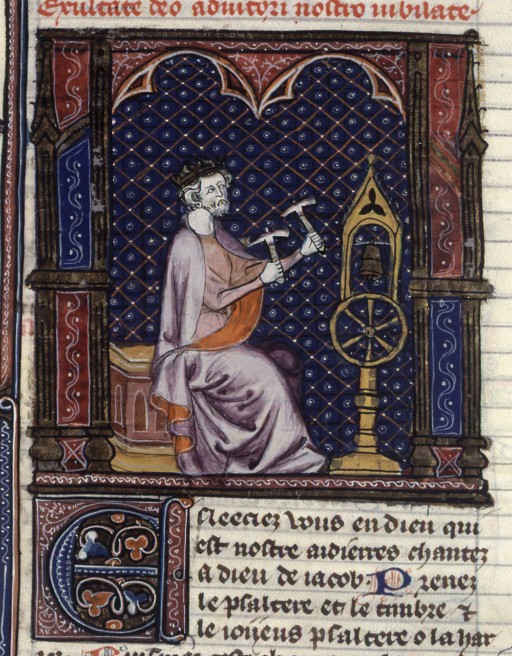 Exultate deo adiutori nostro iubilate
Esleeciez vous en dieu qui
est nostre aidierres chantez
a dieu de iacob Prenez
le psaltere et le timbre ⁊
le ioijeus psaltere o la har